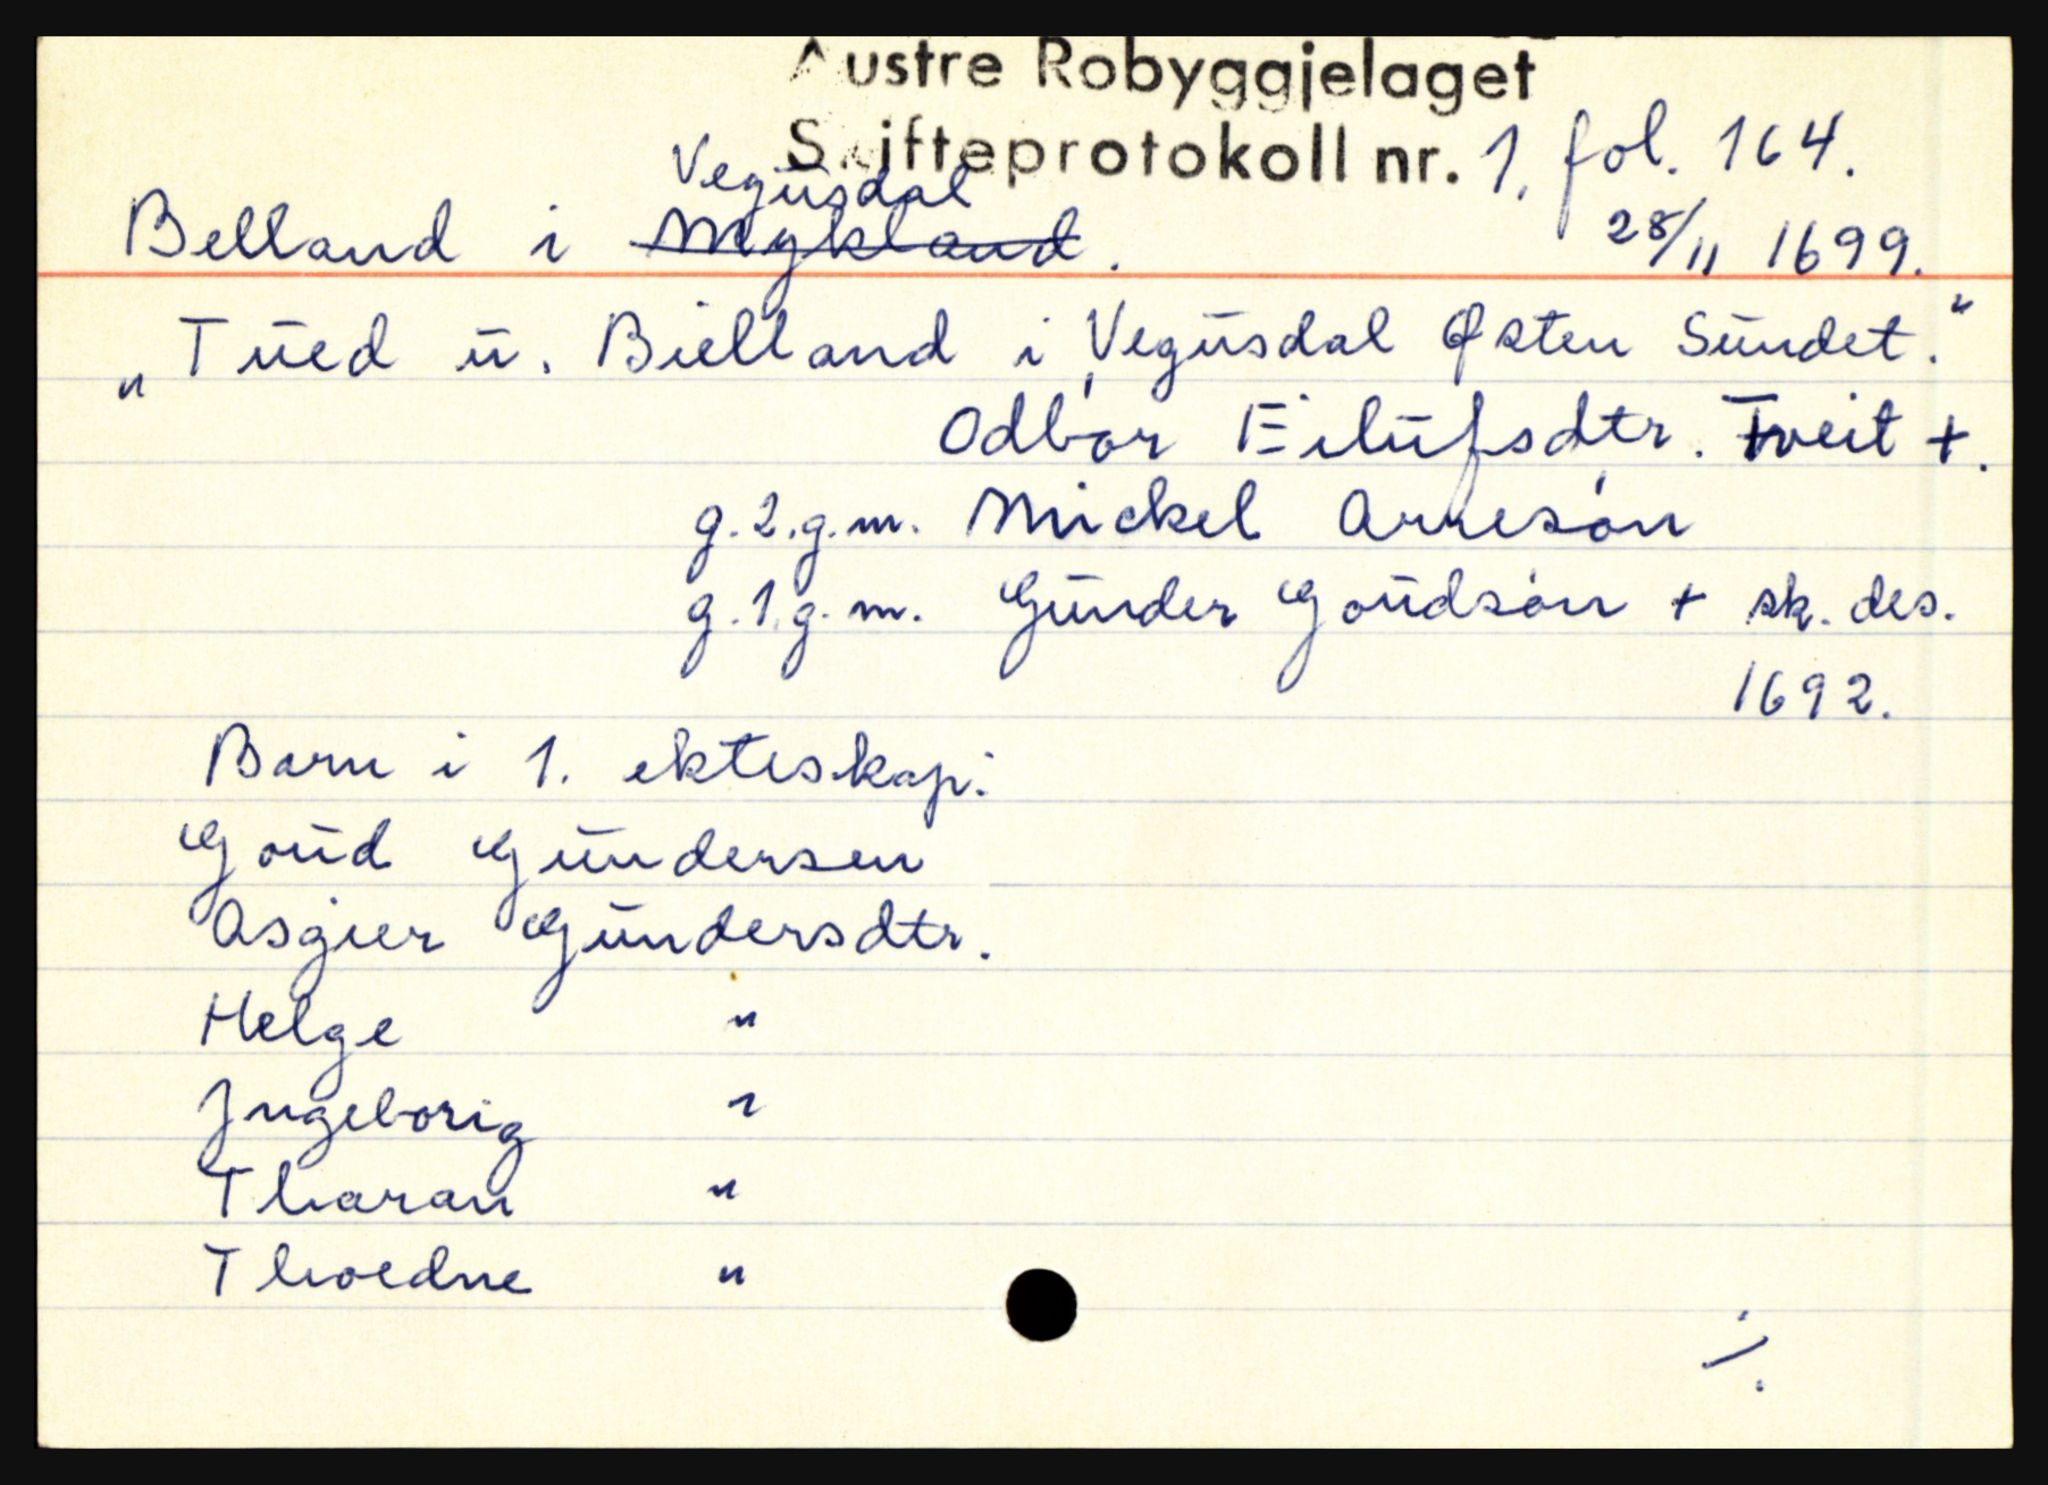 Austre Robyggjelaget
Skifteprotokoll nr. 1, fol. 164.
Vegusdal
Belland i Mykland. 28/11 1699.
"Tued u. Bielland i Vegusdal Østen Sundet."
Odbør Eilufsdtr. Tveit +.
g.2.g.m. Mickel Arnesøn
g.1.g.m. Gunder Goudsøn + sk. des.
1692.
Barn i 1. ekteskap:
Goud Gundersen
Asgier Gundersdtr.
Helge "
Ingeborig "
Tharan "
Thoedne "
./.